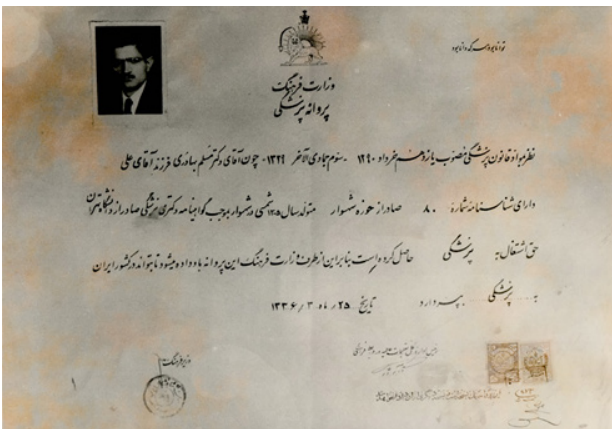 توانا بود هر که دانا بود
وزارت فرهنگ
پروانه پزشکی
نظر بمواد قانون پزشکی مصوب یازدهم خرداد ۱۲۹۰ - سوم جمادی الآخر ۱۳۲۹ - چون آقای دکتر مسلم بهادری فرزند آقای علی
دارای شناسنامه شماره ۸۰ صادر از حوزه شهسوار متولد سال ۱۳۰۵ شمسی در شهسوار بموجب گواهینامه دکتری پزشکی صادر از دانشگاه تهران
حق اشتغال به پزشکی حاصل کرده است بنابر این از طرف وزارت فرهنگ این پروانه باو داده میشود تا بتواند در کشور ایران
به پزشکی بپردازد تاریخ ۲۵ / ماه ۳ / ۱۳۳۶
وزیر فرهنگ